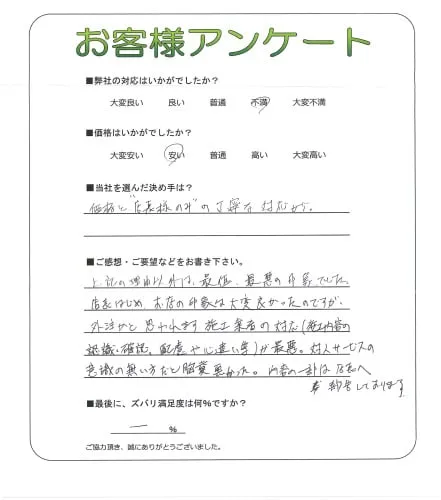 お客様アンケート
■弊社の対応はいかがでしたか?
大変良い 良い 普通 不満 大変不満
■価格はいかがでしたか?
大変安い 安い 普通 高い 大変高い
■当社を選んだ決め手は?
価格と"店長様のみ"の丁寧な対応から。
■ご感想・ご要望などをお書き下さい。
上記の理由以外は、最低、最悪の印象でした。
店長はじめ お店の印象は大変良かったのですが、
外注かと思われます施工業者の対応(施工内容の
認識・確認、配慮や心遣い等)が最悪。対人サービスの
意識の無い方だと 悪かった。内容の一部は店長へ
報告しております
■最後に、ズバリ満足度は何%ですか?
― %
ご協力頂き、誠にありがとうございました。